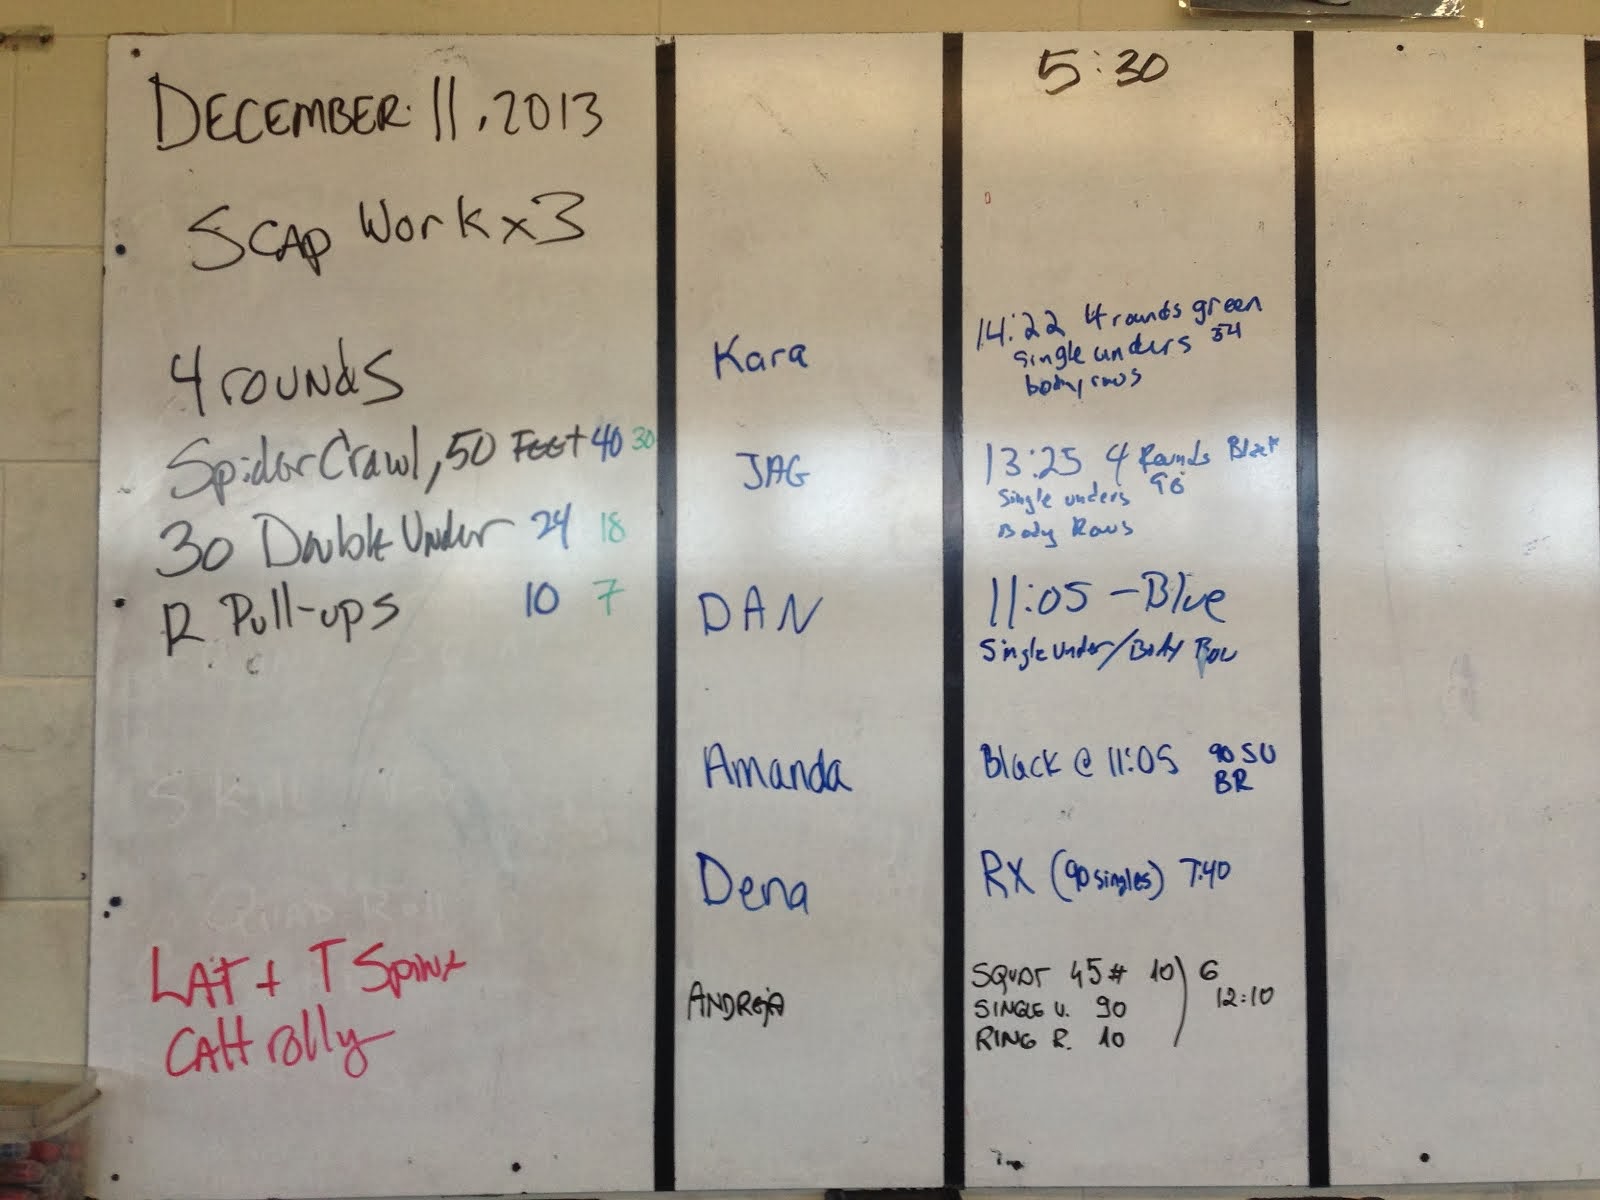 DECEMBER 11, 2013
SCAP Work x3
4 rounds
Spider Crawl, 50 FEET 40 30
30 Double Under 24 18
12 Pull-ups 10 7
QUAD Roll
LAT + T Spine
CAlf rolly
5:30
Kara
14:22 4 rounds green
single unders 54
body rows
JAG
13:25 4 Rounds Black
Single unders 90
Body Rows
DAN
11:05 - Blue
Single under/Body Row
Amanda
Black @ 11:05 90 SU
BR
Dena
RX (90 singles) 7:40
ANDREJA
SQUAT 45# 10 ) 6
SINGLE U. 90 12:10
RING R. 10